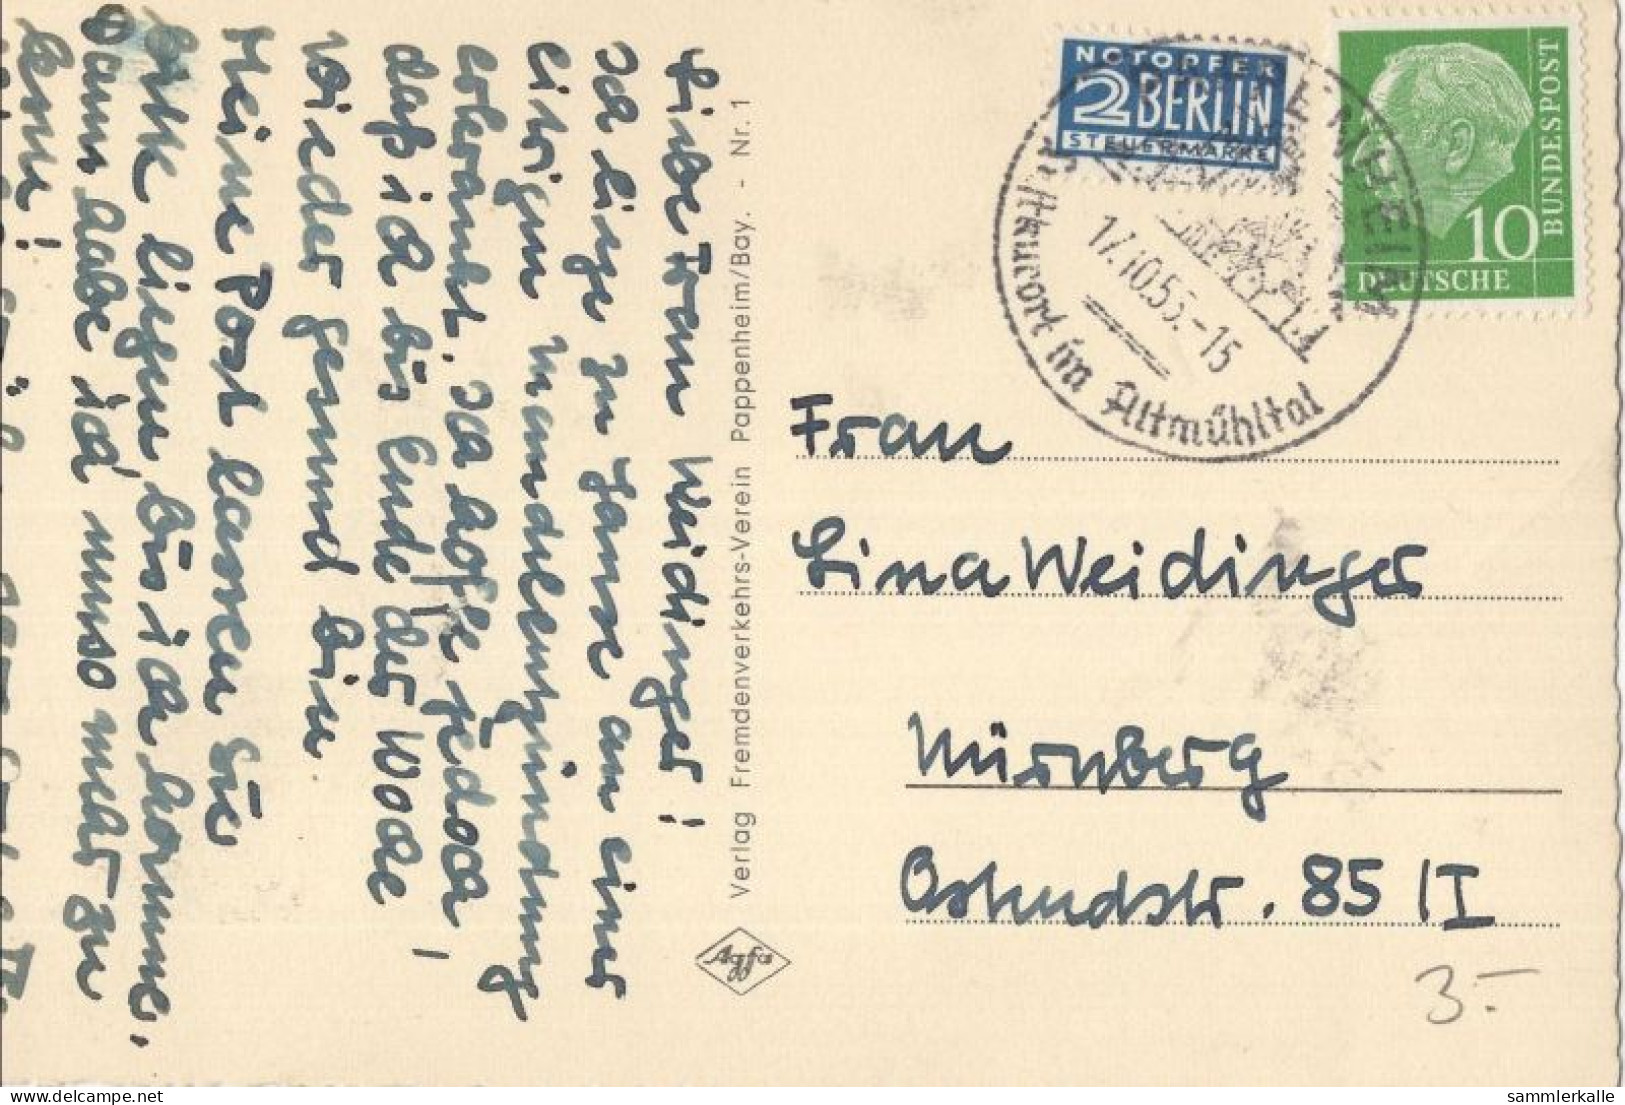 Liebe Frau Weidinger!
Ich liege zu Hause an einer
eitrigen Mandelentzündung
erkrankt. Ich hoffe jedoch,
daß ich bis Ende der Woche
wieder gesund bin.
Meine Post lassen Sie
bitte liegen bis ich komme.
Dann habe ich umso mehr zu
lesen!
Verlag Fremdenverkehrs-Verein Pappenheim/Bay. - Nr. 1
Agfa
NOTOPFER
2 BERLIN
STEUERMARKE
PAPPENHEIM
17.10.55.-15
Luftkurort im Altmühltal
10
DEUTSCHE
BUNDESPOST
Frau
Lina Weidinger
Nürnberg
Ostendstr. 85 /I
3.-
delcampe.net
sammlerkalle